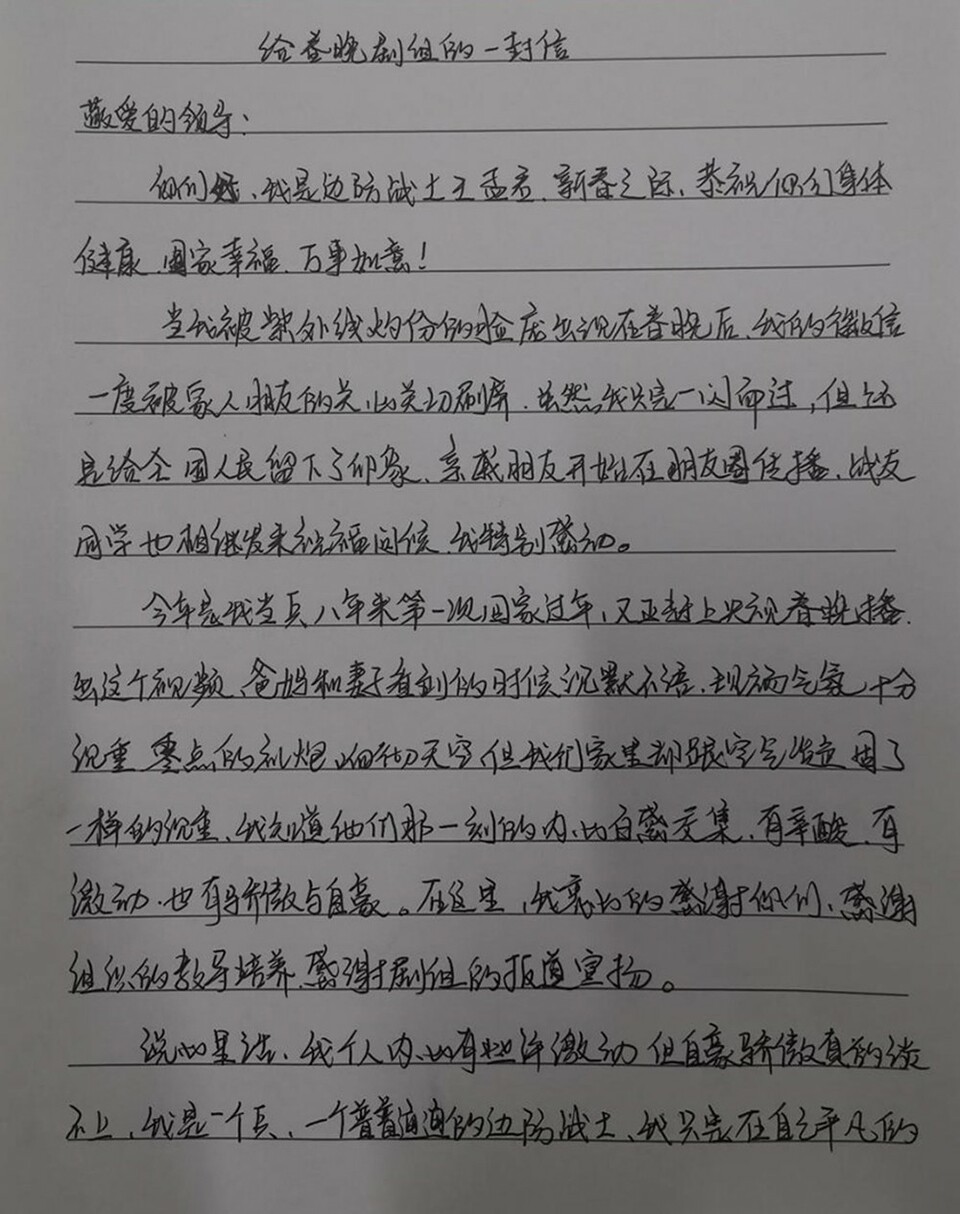 给春晚剧组的一封信
敬爱的领导：
你们好、我是边防战士王孟君、新春之际、恭祝你们身体
健康、国家幸福、万事如意！
当我被紫外线灼伤的脸庞出现在春晚后、我的微信
一度被家人朋友的关心关切刷屏、虽然我只是一闪而过，但还
是给全国人民留下了印象、亲戚朋友开始在朋友圈传播、战友
同学也相继发来祝福问候、我特别感动。
今年是我当兵八年来第一次回家过年，又正赶上央视春晚播
出这个视频、爸妈和妻子看到的时候沉默不语、现场气氛十分
沉重 零点的礼炮响彻天空、但我们家里却跟空气凝固了
一样的沉重、我知道他们那一刻的内心百感交集、有辛酸、有
激动、也有骄傲与自豪。在这里，我衷心的感谢你们、感谢
组织的教导培养、感谢剧组的报道宣扬。
说心里话、我个人内心有些许激动 但自豪骄傲真的谈
不上、我是一个兵、一个普普通通的边防战士、我只是在自己平凡的